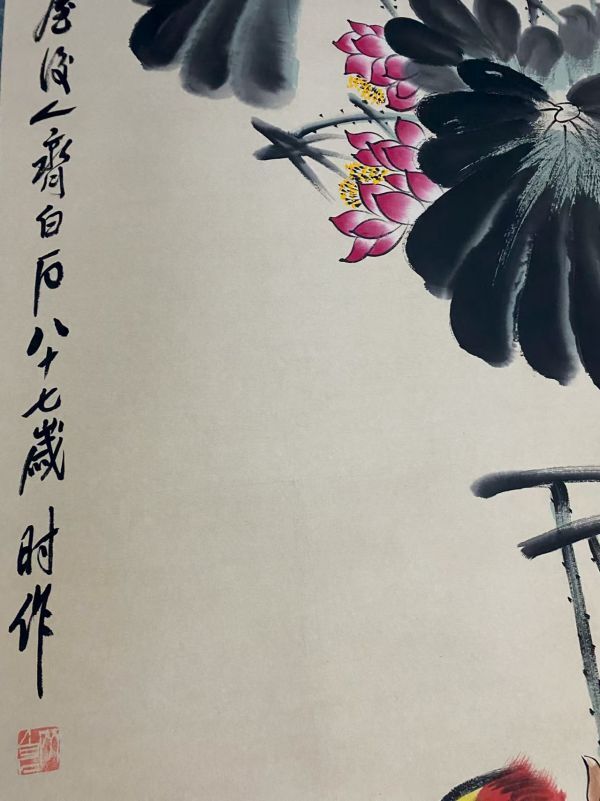 屋後人齊白石八十七歲时作